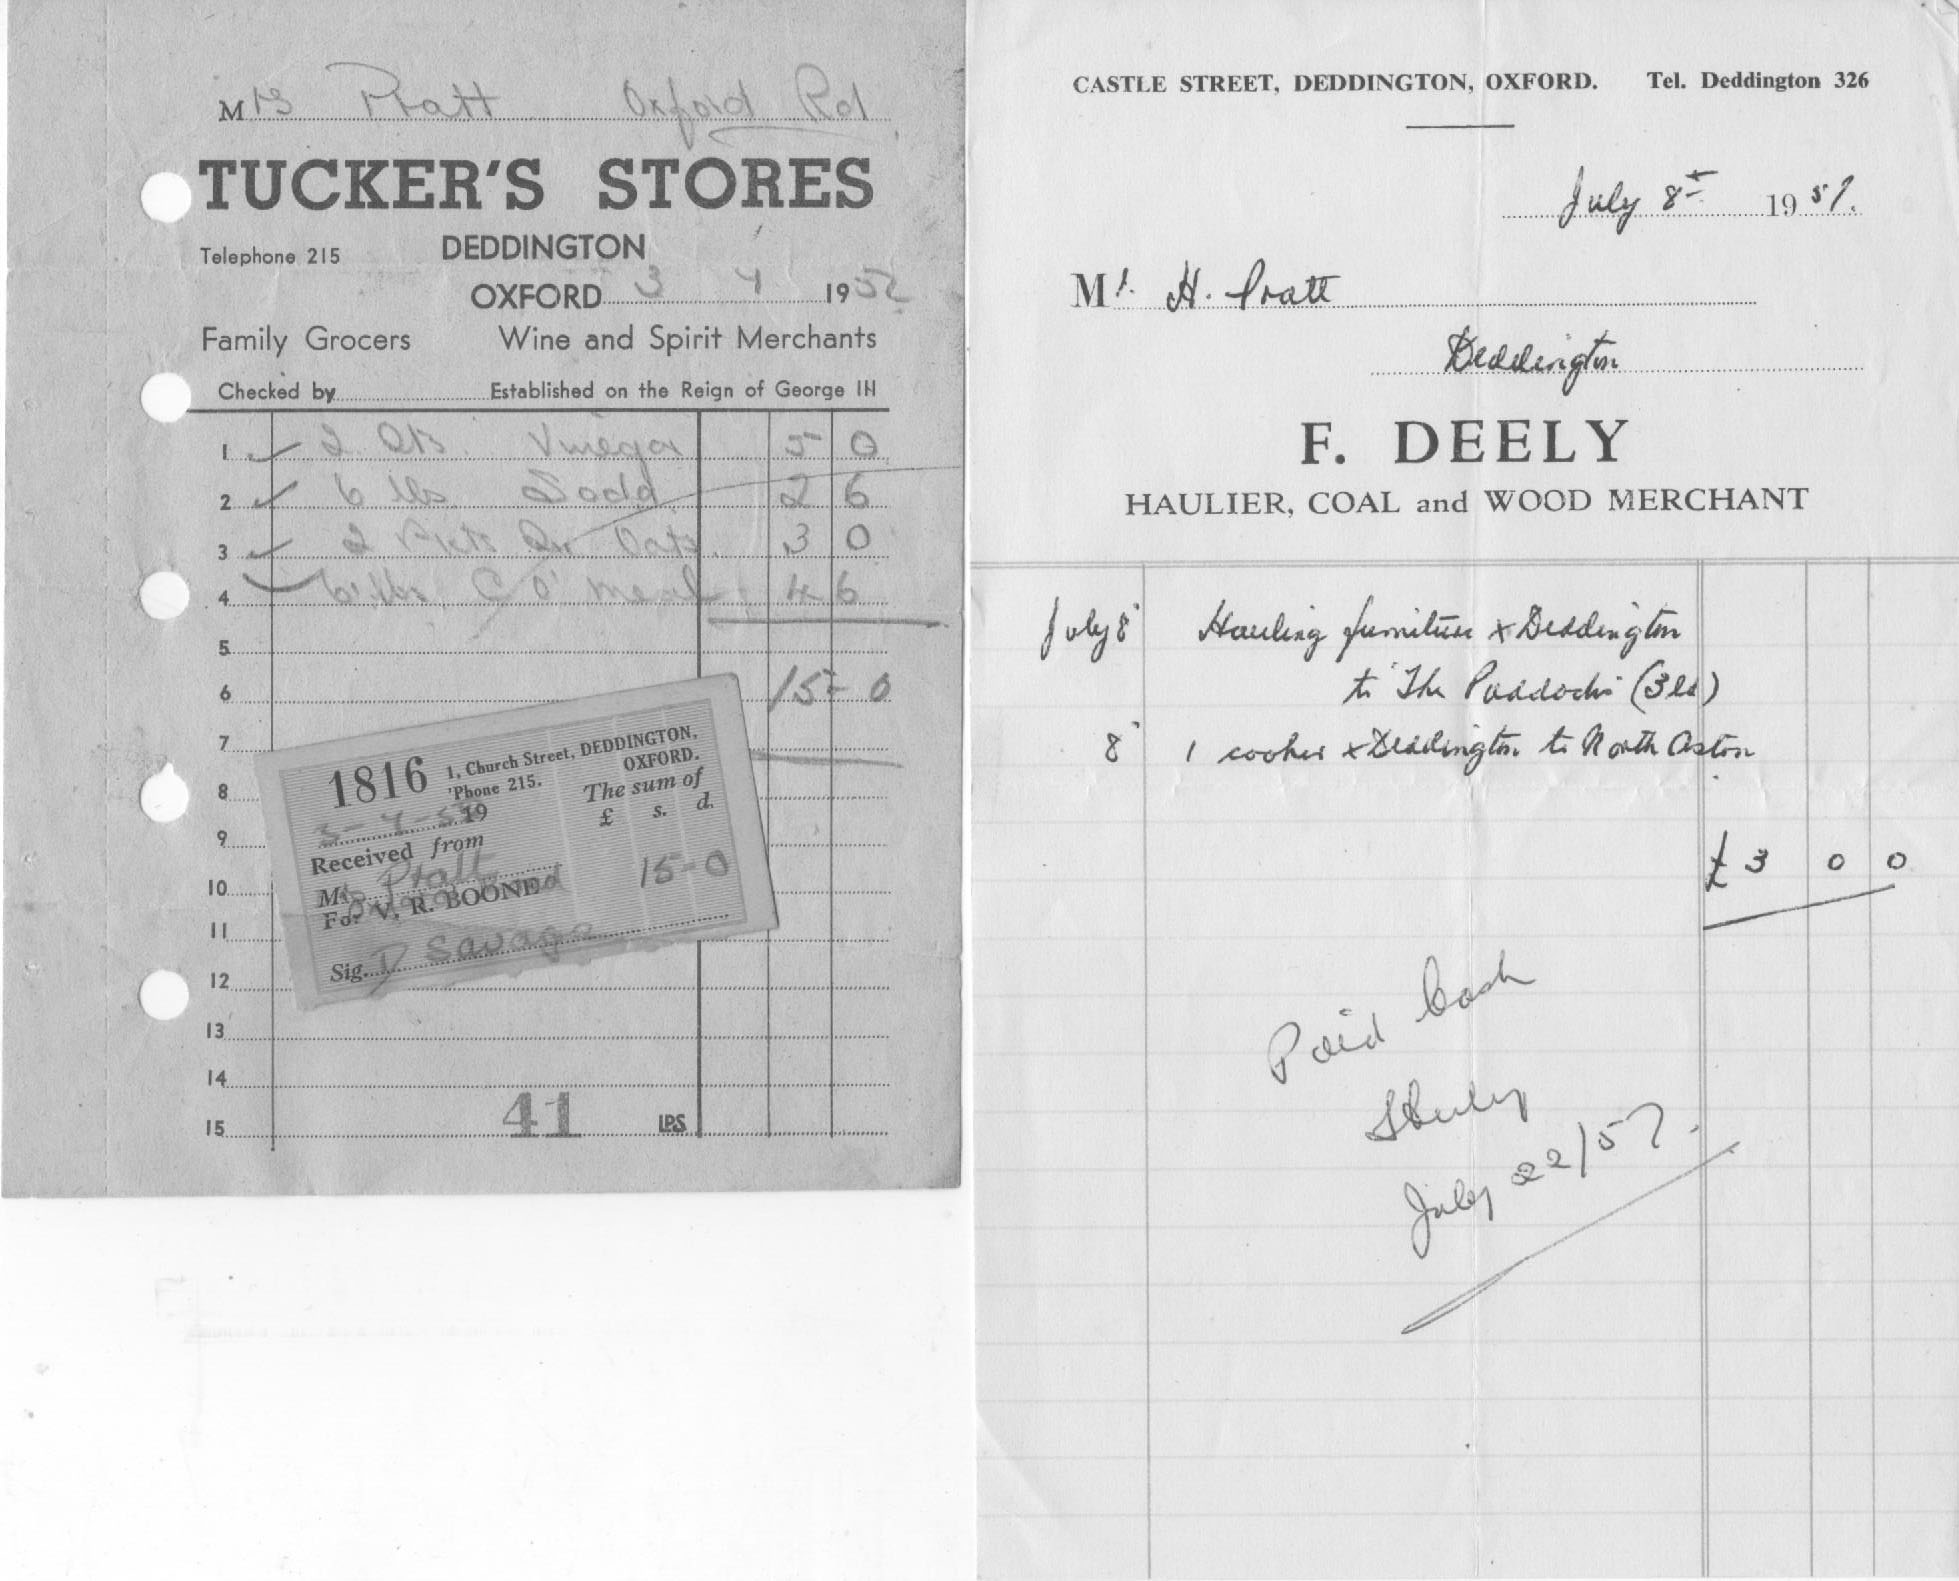 Mrs Pratt Oxford Rd
TUCKER'S STORES
Telephone 215 DEDDINGTON
OXFORD 3 7 1952
Family Grocers Wine and Spirit Merchants
Checked by Established on the Reign of George IN
1 2 Qts. Vinegar 5 0
2 6 lbs Soda 2 6
3 2 Pkts Qr Oats. 3 0
4 6 lbs C O' meal 4 6
5
6 15-0
7
8
9
10
11
12
13
14
15
41 LPS
1816 1, Church Street, DEDDINGTON, OXFORD.
'Phone 215.
The sum of
£ s. d.
3-7-5 19
Received from
Mrs Pratt 15-0
For V. R. BOONE
Sig. D Savage
CASTLE STREET, DEDDINGTON, OXFORD. Tel. Deddington 326
July 8th 1957.
Mr. H. Pratt
Deddington
F. DEELY
HAULIER, COAL and WOOD MERCHANT
July 8" Hauling furniture x Deddington
to "The Paddocks" (3 lds)
8" 1 cooker x Deddington to North Aston
£3 0 0
Paid Cash
July 22/57.